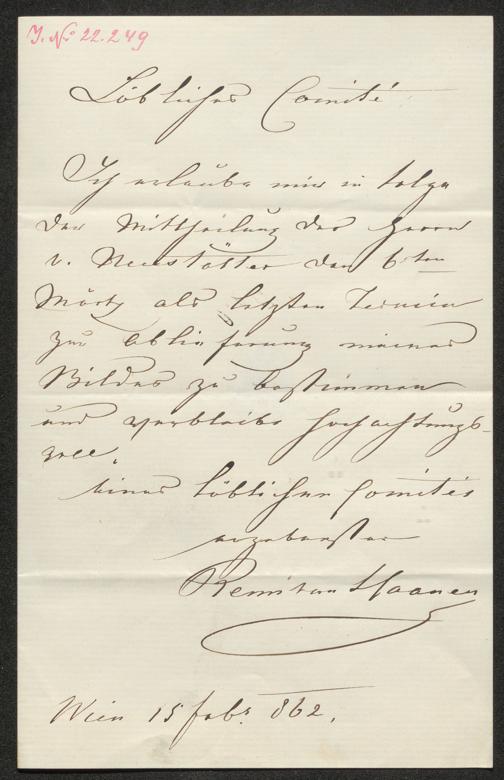 J. No 22.249
Löbliches Comité
Ich erlaube mir in folge
der Mittheilung des Herrn
v. Neustätter den 6ten
März als letzten Termin
zur Ablieferung meines
Bildes zu bestimmen
und verbleibe hochachtungs-
voll.
eines löblichen Comités
ergebenster
Remi van Haanen
Wien 15 febr. 862.